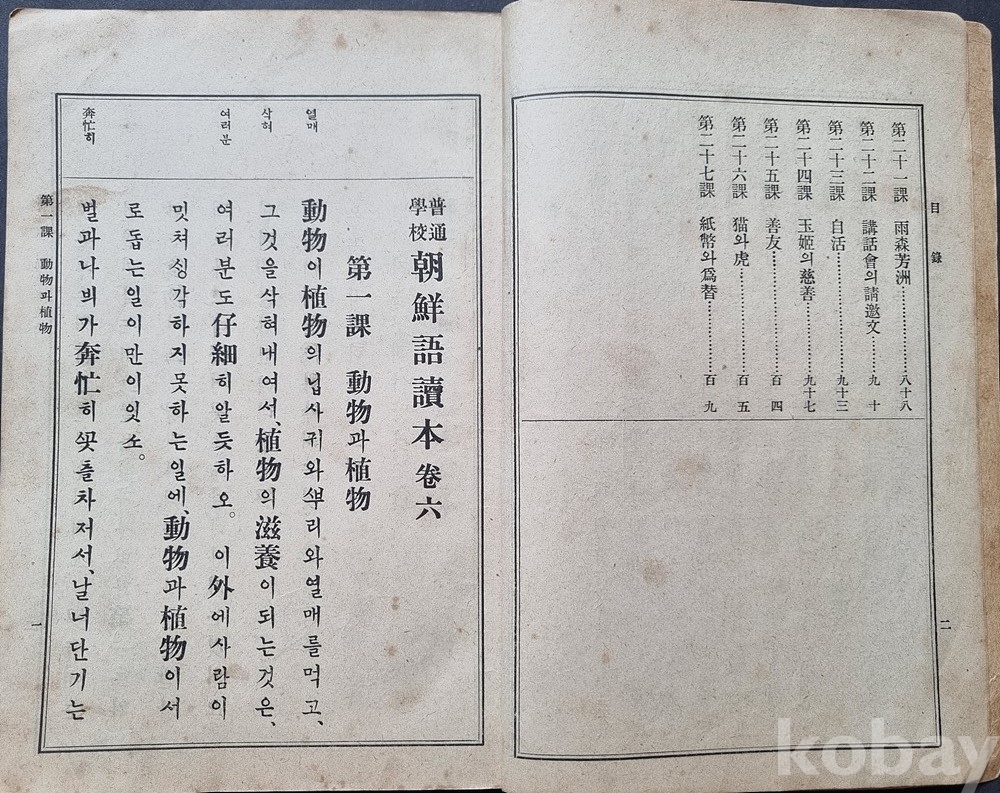 目錄
第二十一課 雨森芳洲………八十八
第二十二課 講話會의請邀文………九十
第二十三課 自活………九十三
第二十四課 玉姬의慈善………九十七
第二十五課 善友………百四
第二十六課 猫와虎………百五
第二十七課 紙幣와爲替………百九
二
普通學校 朝鮮語讀本 卷六
第一課 動物과植物
動物이植物의닙사귀와ᄲᅮ리와열매를먹고、
그것을삭혀내여서、植物의滋養이되는것은、
여러분도仔細히알듯하오。이外에사람이
밋쳐싱각하지못하는일에、動物과植物이서
로돕는일이만이잇소。
벌과나븨가奔忙히ᄭᅩᆺ츨차저서、날너단기는
열매
삭혀
여러분
奔忙히
第一課 動物과植物
一
kobay